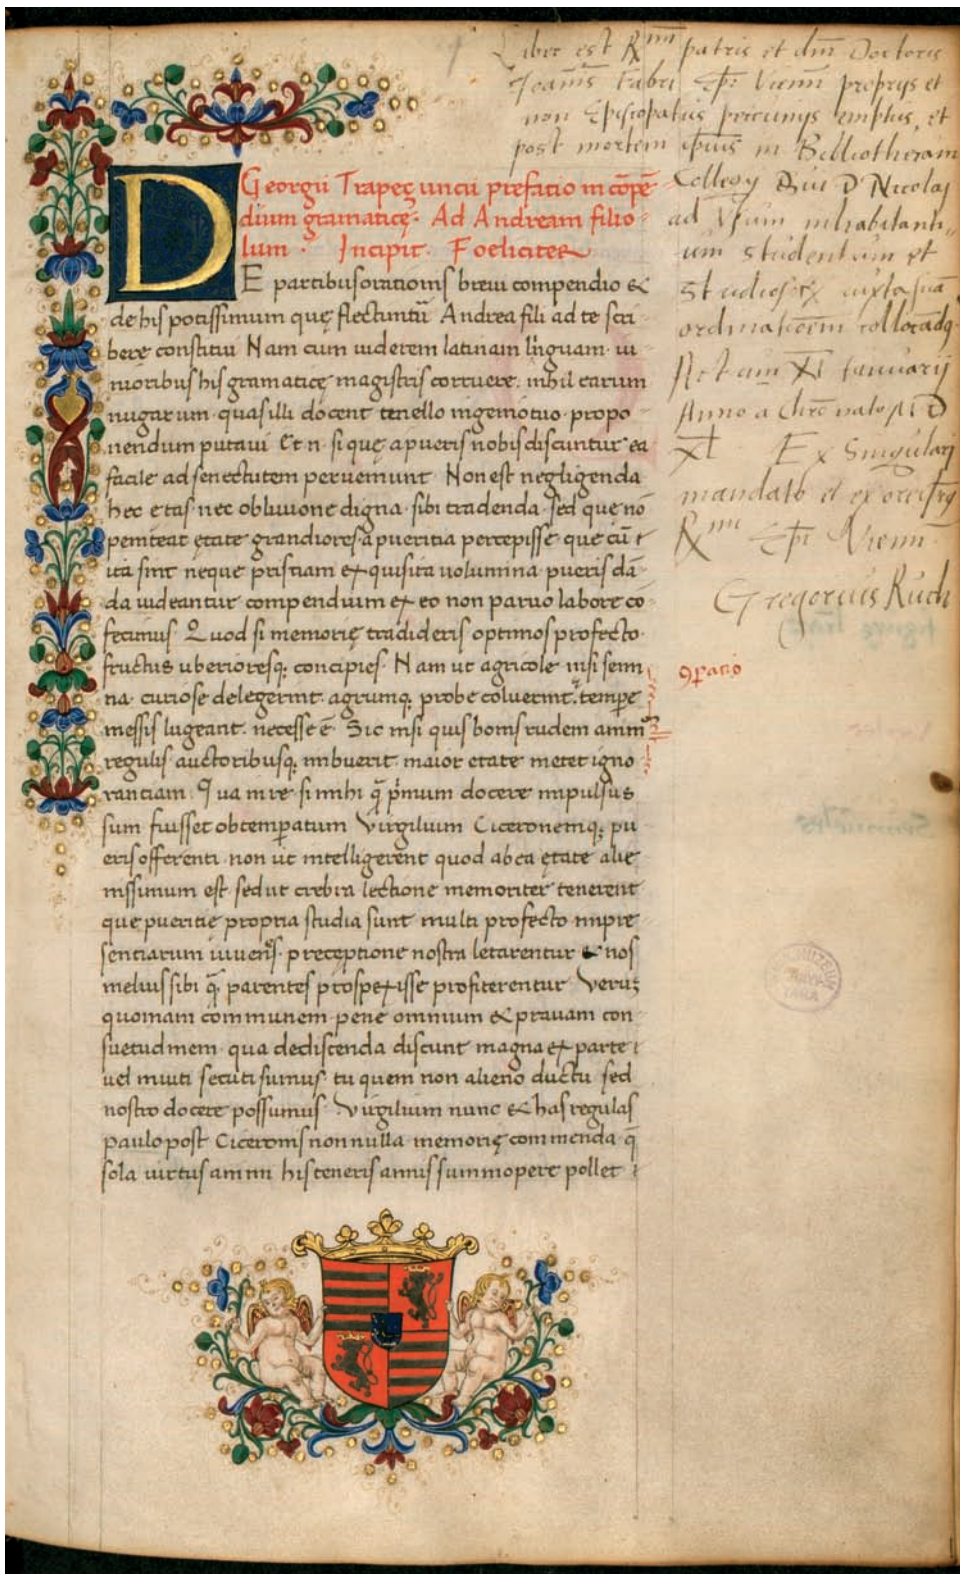 Liber est R^mi patris et dm̄ Doctoris
Joan̄is Fabri Ep̄i Vien̄n proprijs et
non Episcopatus pecunijs emptus, et
post mortem ip̄ius in Bibliothecam
Collegij Diui D Nicolaj
ad Vsum inhabitanti„
um studentum et
studiosorꝝ iuxta suā
ordinationem collocādꝰ
Act am XI Januarij
Anno a Chro nato M D
XL Ex Singulari
mandato et ex
R^mi Ep̄i Vienn̄
Gregorius Ruch
Georgii Trapeçuncii prefatio in cōpē-
dium gramaticę. Ad Andream filio-
lum. Incipit. Foeliciter
DE partibus orationis breui compendio &
de his potissimum quę flectuntur̄ Andrea fili ad te scri
bere constitui Nam cum uiderem latinam linguam iu
nioribus his gramaticę magistris corruere. nihil earum
nugarum quas illi docent tenello ingenio tuo propo-
nendum putaui Et.n. si quę a pueris nobis discuntur ea
facile ad senectutem perueniunt Non est negligenda
hec etas nec obliuione digna sibi tradenda sed que nō
peniteat ętate grandiores a pueritia percepisse que cū
ita sint neque prisciani exquisita uolumina pueris dā-
da uideantur compendium ex eo non paruo labore co
fecimus Quod si memorię tradideris optimos profecto
fructus uberioresq; concipies. Nam ut agricole nisi semi
na curiose delegerint agrumq; probe coluerint tempe
messis lugeant necesse ē Sic nisi quis bonis rudem animū
regulis auctoribusq; imbuerit maior etate metet igno
rantiam Qua in re si mihi q̄ p̄mum docere impulsus
sum fuisset obtemp̄atum Virgilium Ciceronemq; pu
eris offerenti non ut intelligerent quod ab ea ętate alie
nissimum est sed ut crebra lectione memoriter tenerent
que pueritie propria studia sunt multi profecto inpre
sentiarum iuuenes preceptione nostra letarentur & nos
melius sibi q̄ parentes prospexisse profiterentur Veruꝫ
quoniam communem pene omnium & prauam con
suetudinem qua dediscenda discunt magna ex parte
uel inuiti secuti sumus tu quem non alieno ductu sed
nostro docere possumus Virgilium nunc & has regulas
paulo post Ciceronis non nulla memorię commenda q̄
sola uirtus animi his teneris annis summopere pollet
ꝯparatio